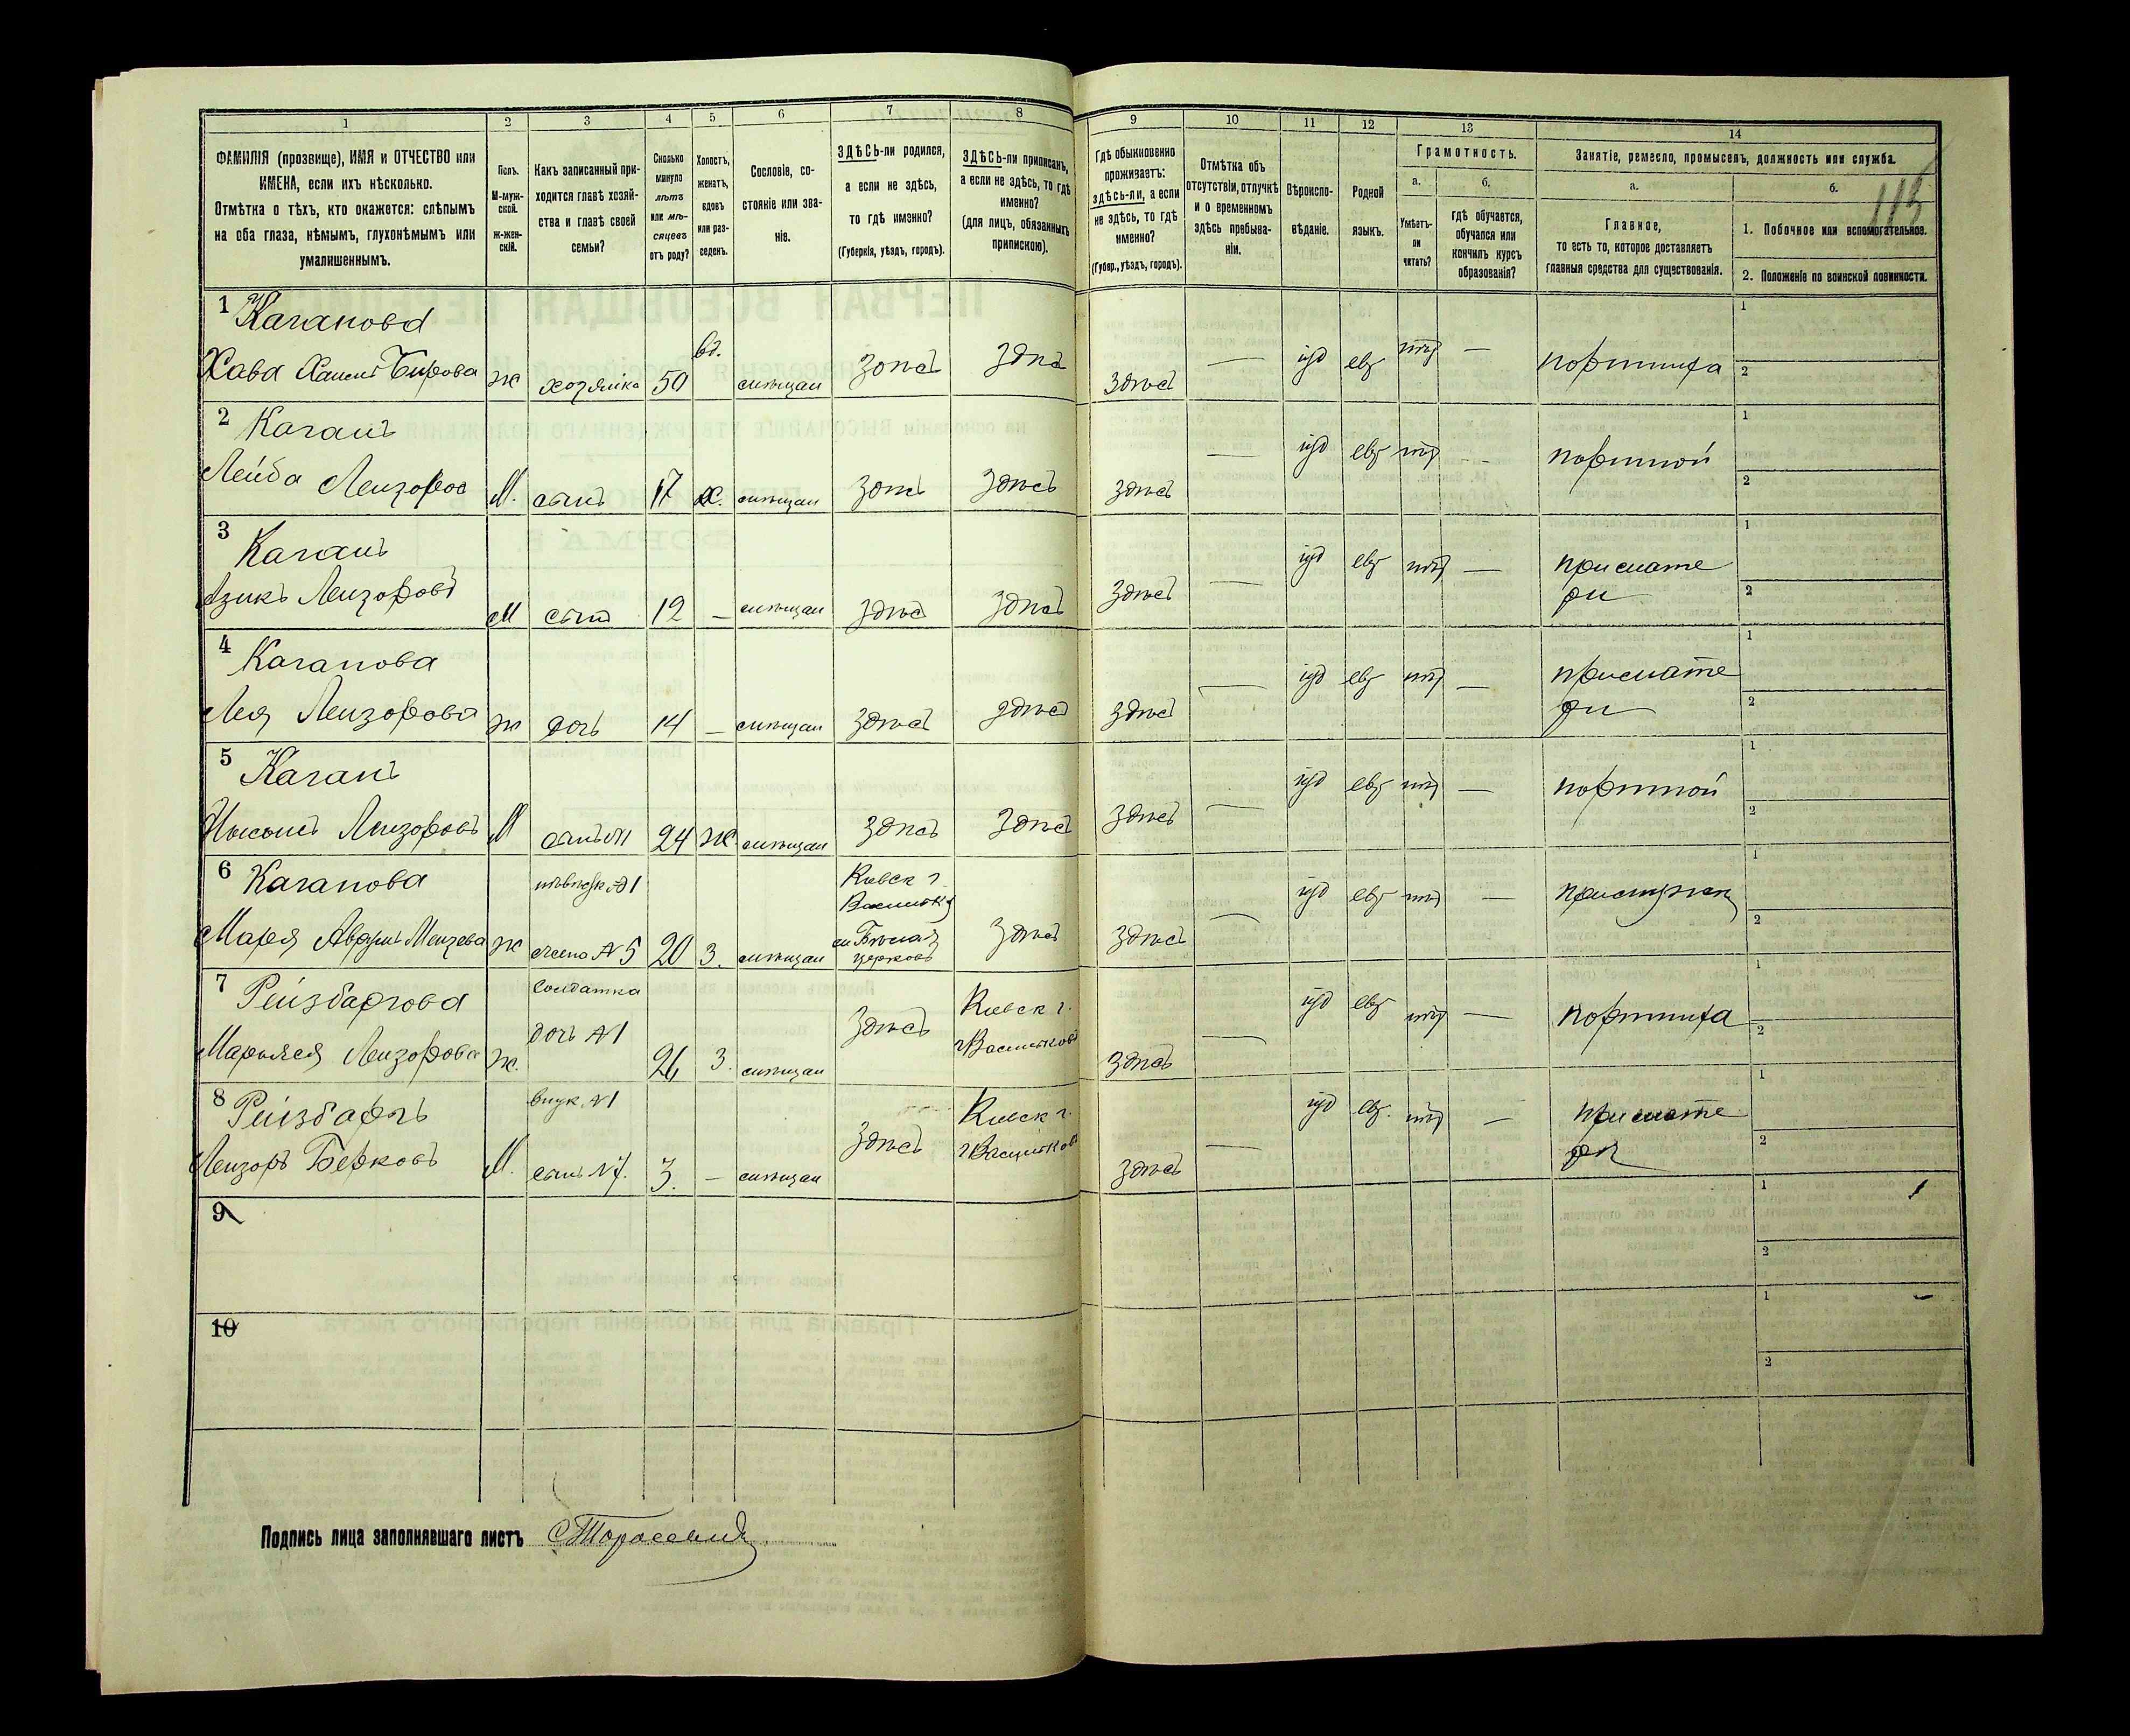 1 2 3 4 5 6 7 8 9 10 11 12 13 14
ФАМИЛІЯ (прозвище), ИМЯ и ОТЧЕСТВО или
ИМЕНА, если ихъ нѣсколько.
Отмѣтка о тѣхъ, кто окажется: слѣпымъ
на оба глаза, нѣмымъ, глухонѣмымъ или
умалишеннымъ.
Полъ.
М-муж-
ской.
Ж-жен-
скій.
Какъ записанный при-
ходится главѣ хозяй-
ства и главѣ своей
семьи?
Сколько
минуло
лѣтъ
или мѣ-
сяцевъ
отъ роду?
Холостъ,
женатъ,
вдовъ
или раз-
веденъ.
Сословіе, со-
стояніе или зва-
ніе.
ЗДѢСЬ-ли родился,
а если не здѣсь,
то гдѣ именно?
(Губернія, уѣздъ, городъ).
ЗДѢСЬ-ли приписанъ,
а если не здѣсь, то гдѣ
именно?
(для лицъ, обязанныхъ
припискою).
Гдѣ обыкновенно
проживаетъ:
здѣсь-ли, а если
не здѣсь, то гдѣ
именно?
(Губер., уѣздъ, городъ).
Отмѣтка объ
отсутствіи, отлучкѣ
и о временномъ
здѣсь пребыва-
ніи.
Вѣроиспо-
вѣданіе.
Родной
языкъ.
Грамотность.
а.
Умѣетъ-
ли
читать?
б.
гдѣ обучается,
обучался или
кончилъ курсъ
образованія?
Занятіе, ремесло, промыселъ, должность или служба.
а.
Главное,
то есть то, которое доставляетъ
главныя средства для существованія.
б.
115
1. Побочное или вспомогательное.
2. Положеніе по воинской повинности.
1 Каганова
Хава ж хозяйка 50 вд. мѣщан здѣсь здѣсь здѣсь — іуд евр нѣт — портниха 1 2
2 Каганъ
Лейба Лейзоров М. сынъ 17 х. мѣщан здѣсь здѣсь здѣсь — іуд евр нѣт — портной 1 2
3 Каганъ
Азикъ Лейзоровъ М сынъ 12 — мѣщан здѣсь здѣсь здѣсь — іуд евр нѣт — при мате
ри 1 2
4 Каганова
Лея Лейзорова ж дочь 14 — мѣщан здѣсь здѣсь здѣсь — іуд евр нѣт — при мате
ри 1 2
5 Каганъ
Лейзоровъ М сынъ №1 24 ж. мѣщан здѣсь здѣсь здѣсь — іуд евр нѣт — портной 1 2
6 Каганова невѣстк №1 Киевск г.
Васильк у
Марья ж жена №5 20 З. мѣщан м Бѣлая
церковь здѣсь здѣсь — іуд евр нѣт — 1 2
7 Рейзбаргова солдатка
дочь №1 здѣсь Киевск г.
г Васильковъ
Лейзорова ж. 26 З. мѣщан здѣсь — іуд евр нѣт — портниха 1 2
8 Рейзбаргъ внук №1 здѣсь Киевск г.
г Васильковъ
Лейзоръ Берковъ М. сынъ №7. 3. — мѣщан здѣсь — іуд евр. нѣт — при мате
ри 1 2
9 1 2
10 1 2
Подпись лица заполнявшаго листъ Тарасевичъ